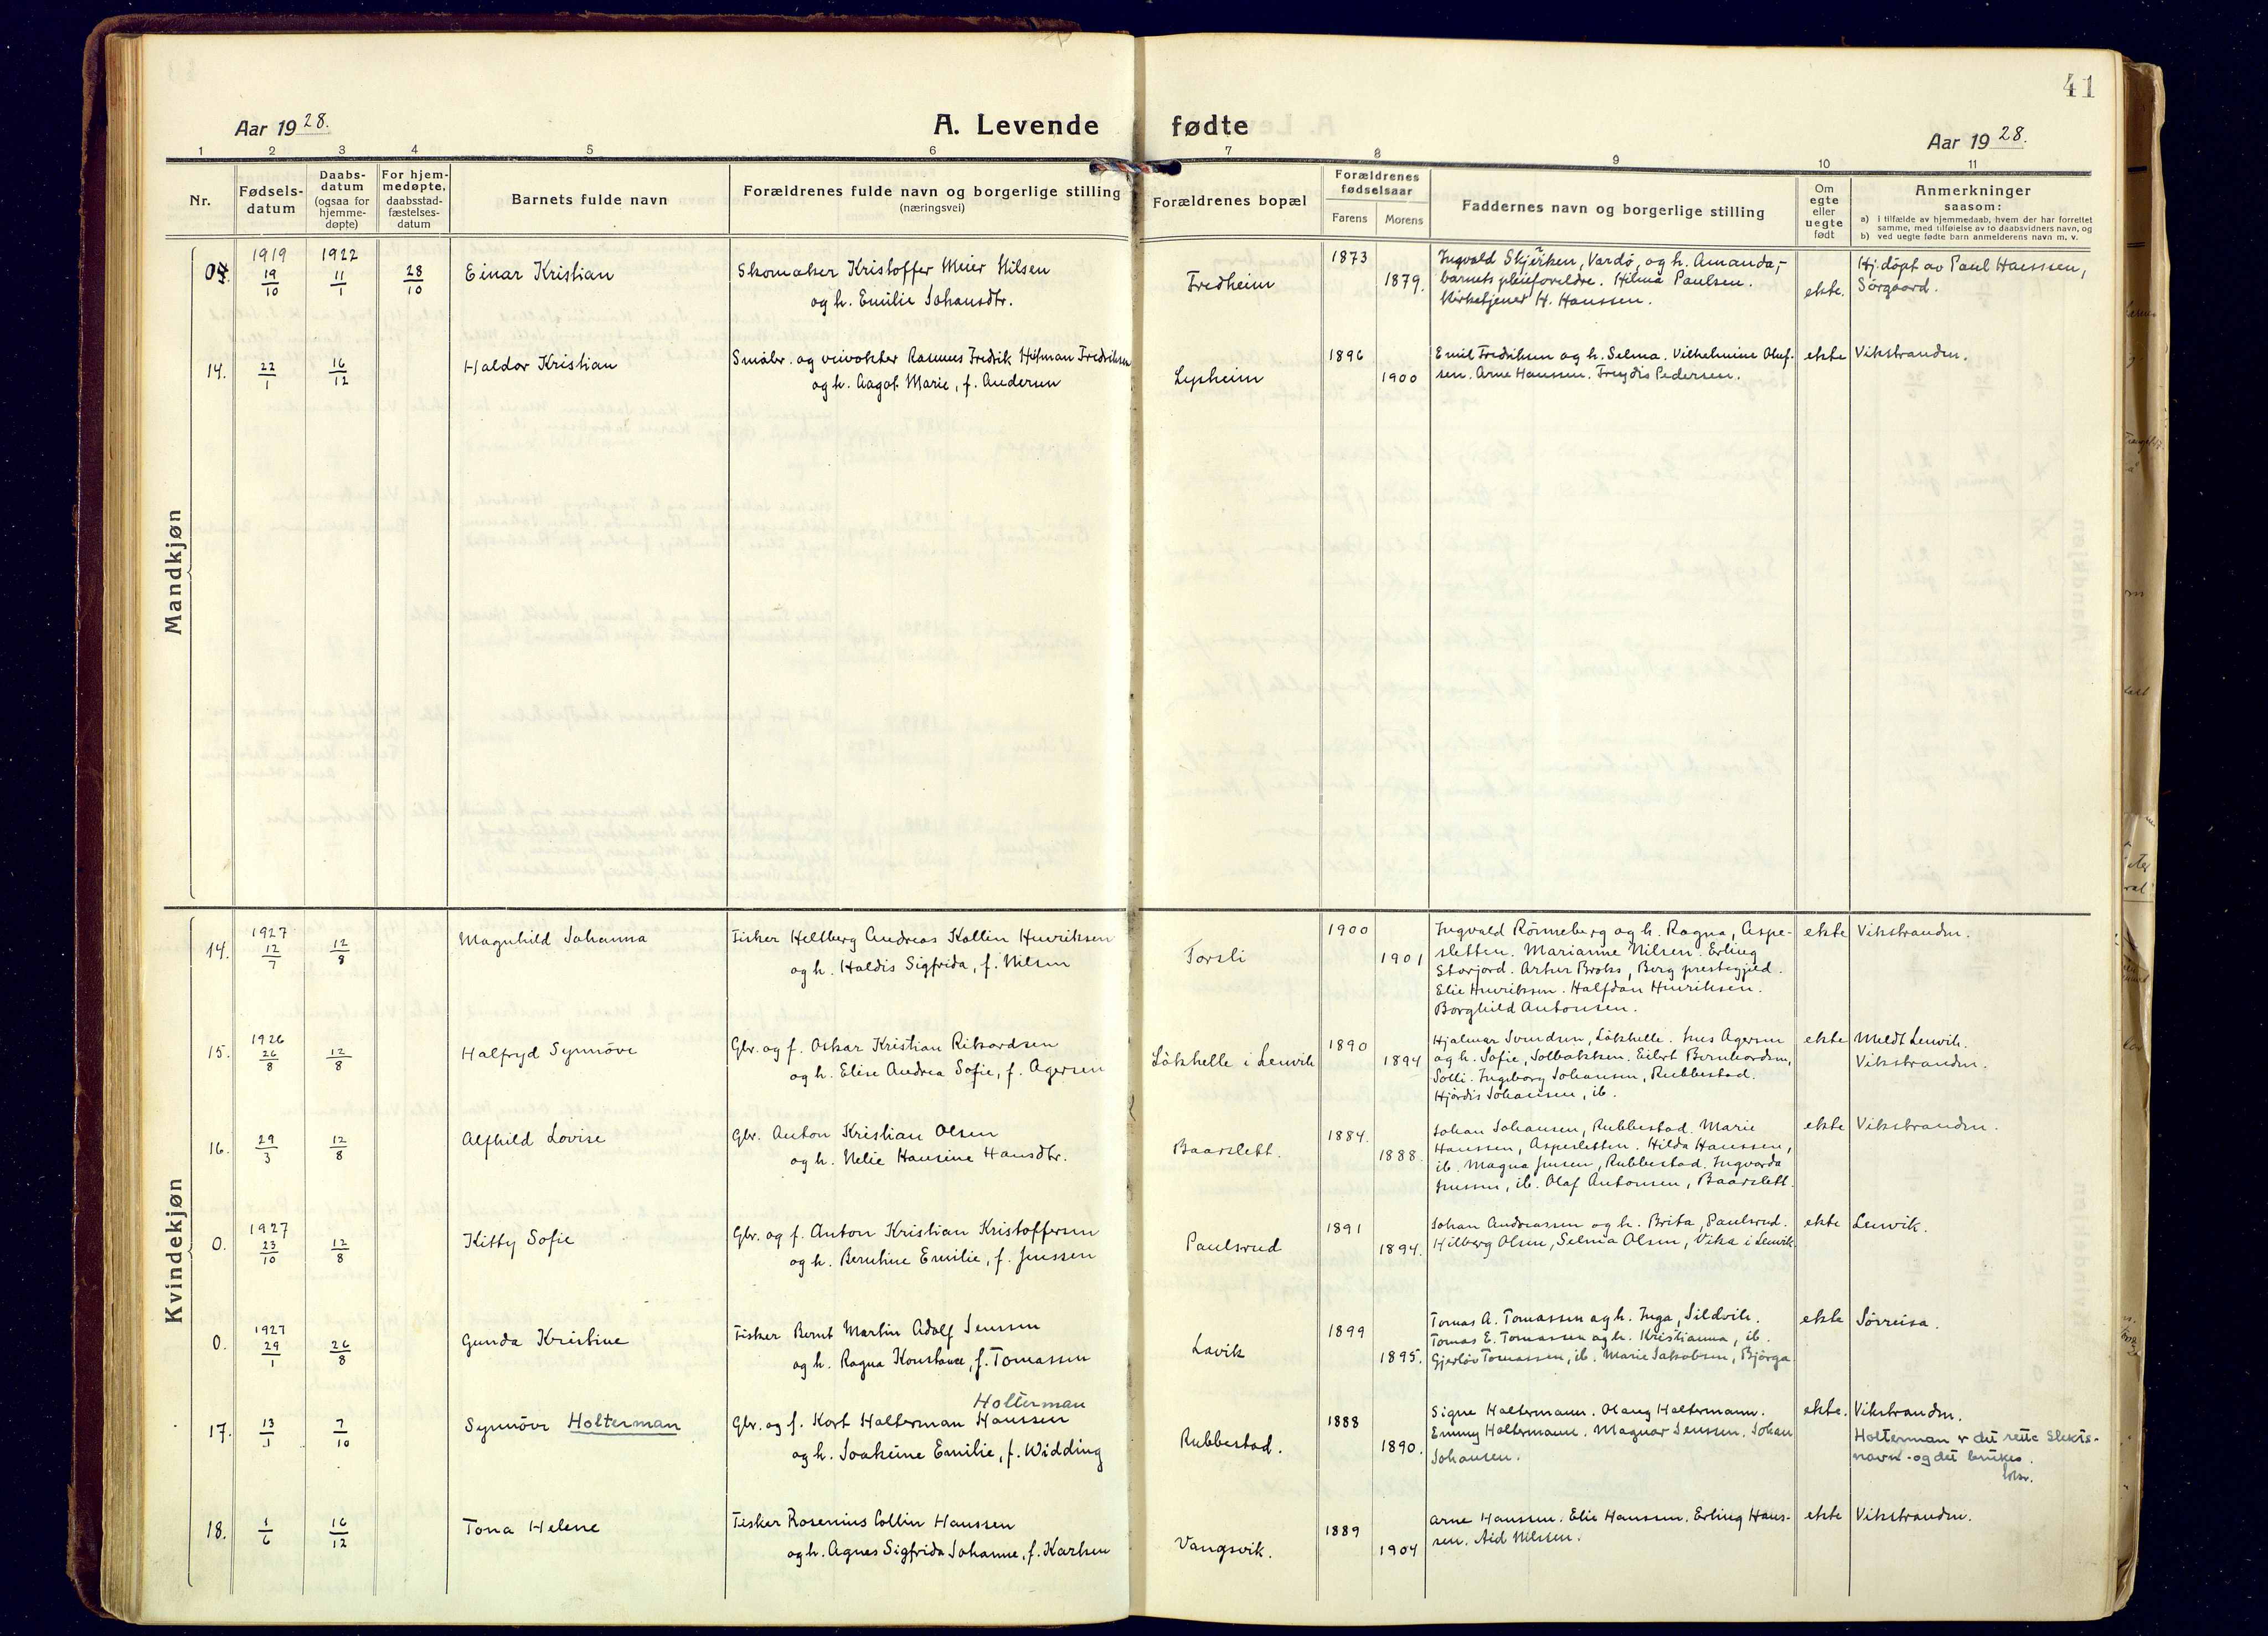 41
Aar 1928.
A. Levende fødte
Aar 1928.
1 2 3 4 5 6 7 8 9 10 11
Nr.
Fødsels-
datum
Daabs-
datum
(ogsaa for
hjemme-
døpte)
For hjem-
medøpte,
daabsstad-
fæstelses-
datum
Barnets fulde navn
Forældrenes fulde navn og borgerlige stilling
(næringsvei)
Forældrenes bopæl
Forældrenes
fødselsaar
Farens
Morens
Faddernes navn og borgerlige stilling
Om
egte
eller
uegte
født
Anmerkninger
saasom:
a) i tilfælde av hjemmedaab, hvem der har forrettet
samme, med tilføielse av to daabsvidners navn, og
b) ved uegte fødte barn anmelderens navn m. v.
Mandkjøn
1919 1922
19/10 11/1 28/10
Einar Kristian
Skomaker Kristoffer Meier Nilsen
og h. Emilie Johansdtr.
Fredheim
1873
1879.
Ingvald Skjerken, Vardø, og h. Amanda,-
barnets pleieforeldre. Hilma Paulsen.
Kirketjener H. Hanssen.
ekte.
Hj.døpt av Paul Hanssen,
Sørgaard.
14. 22/1 16/12
Haldor Kristian
Småbr. og veivokter Rasmus Fredrik Hofman Fredriksen
og h. Aagot Marie, f. Andersen
Lysheim
1896
1900
Emil Fredriksen og h. Selma. Vilhelmine Oluf-
sen. Arne Hanssen. Frøydis Pedersen.
ekte
Vikstranden.
Kvindekjøn
1927
14. 12/7 12/8
Magnhild Johanna
Fisker Heltberg Andreas Kollin Henriksen
og h. Haldis Sigfrida, f. Nilsen
Forsli
1900
1901
Ingvald Rønneberg og h. Ragna, Aspe-
sletten. Marianne Nilsen. Erling
Storjord. Artur Broks, Berg prestegjeld.
Elie Henriksen. Halfdan Henriksen.
Borghild Antonsen.
ekte
Vikstranden.
1926
15. 26/8 12/8
Halfryd Synnøve
Gbr. og f. Oskar Kristian Rikardsen
og h. Elise Andrea Sofie, f. Agersen
Løkhelle i Lenvik
1890
1894
Hjalmar Svendsen, Løkhelle. Jens Agersen
og h. Sofie, Solbakken. Eilert Bernhardsen,
Solli. Ingeborg Johansen, Rubbestad.
Hjørdis Johansen, ib.
ekte
Meldt Lenvik.
Vikstranden.
16. 29/3 12/8
Alfhild Lovise
Gbr. Anton Kristian Olsen
og h. Nelie Hansine Hansdtr.
Baarslett.
1884.
1888.
Johan Johansen, Rubbestad. Marie
Hanssen, Aspesletten. Hilda Hanssen,
ib. Magna Jensen, Rubbestad. Ingvarda
Jensen, ib. Olaf Antonsen, Baarslett.
ekte
Vikstranden.
1927
0. 23/10 12/8
Kitty Sofie
Gbr. og f. Anton Kristian Kristoffersen
og h. Berntine Emilie, f. Jenssen
Paulsrud
1891
1894.
Johan Andreassen og h. Brita, Paulsrud.
Hilberg Olsen, Selma Olsen, Vika i Lenvik.
ekte
Lenvik.
1927
0. 29/1 26/8
Gunda Kristine
Fisker Bernt Martin Adolf Jenssen
og h. Ragna Konstance, f. Tomassen
Lavik
1899
1895.
Tomas A. Tomassen og h. Inga, Sildvik.
Tomas E. Tomassen og h. Kristianna, ib.
Gjerløv Tomassen, ib. Marie Jakobsen, Bjørga
ekte
Sørreisa.
Holterman
17. 13/1 7/10
Synnøve Holterman
Gbr. og f. Kort Halterman Hanssen
og h. Joakime Emilie, f. Widding
Rubbestad.
1888
1890.
Signe Haltermann. Olaug Haltermann.
Emmy Haltermann. Magnar Jenssen. Johan
Johansen.
ekte.
Vikstranden.
Holterman er det rette Slekts-
navn - og det brukes.
18. 1/6 16/12
Tona Helene
Fisker Rosenius Collin Hanssen
og h. Agnes Sigfrida Johanne, f. Karlsen
Vangsvik.
1889
1904
Arne Hanssen. Elie Hanssen. Erling Hans-
sen. Aid Nilssen.
ekte
Vikstranden.